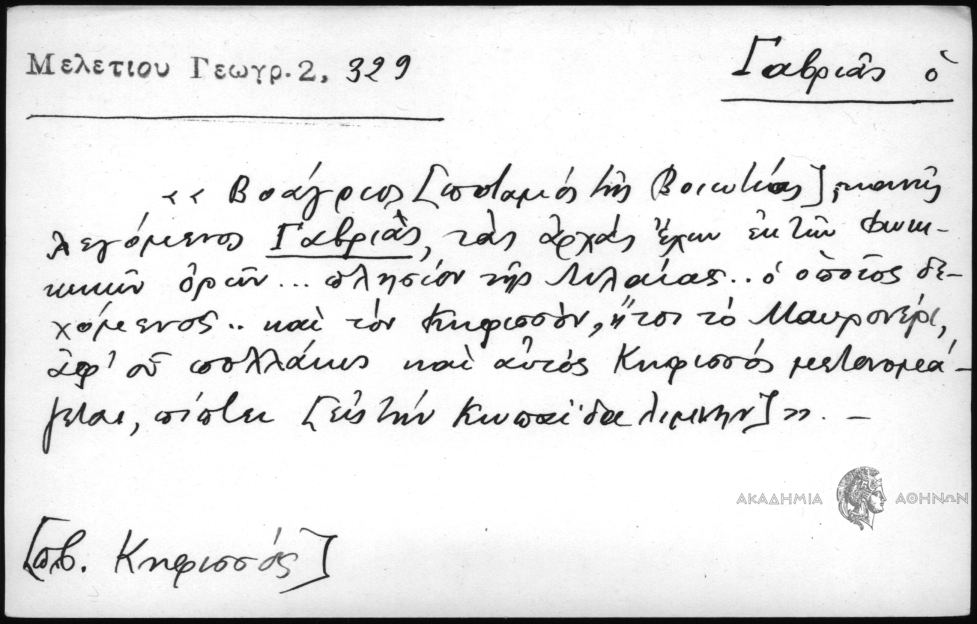 Μελετίου Γεωγρ. 2, 329
Γαβριᾶς ὁ
«Βοάγριος [ποταμὸς τῆς Βοιωτίας], κοινῶς
λεγόμενος Γαβριᾶς, τὰς ἀρχὰς ἔχων ἐκ τῶν Φωκι-
κικῶν ὀρῶν ... πλησίον τῆς Λιλαίας .. ὁ ὁποῖος δε-
χόμενος .. καὶ τὸν Κηφισσὸν, ἤτοι τὸ Μαυρονέρι,
ἀφ' οὗ πολλάκις καὶ αὐτὸς Κηφισσός μετονομά-
ζεται, πίπτει [εἰς τὴν Κωπαΐδα λίμνην]». –
ΑΚΑΔΗΜΙΑ ΑΘΗΝΩΝ
[πβ. Κηφισσός]